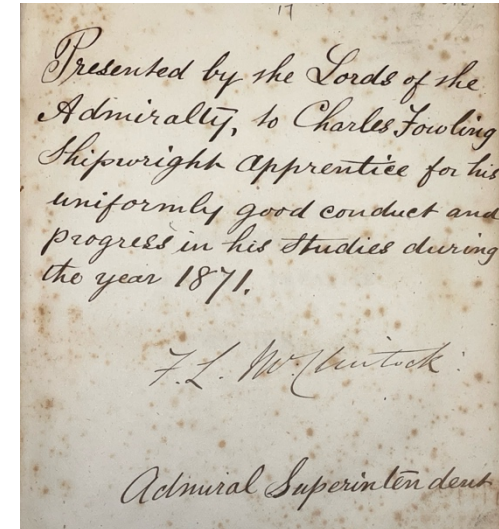 17
Presented by the Lords of the
Admiralty, to Charles Fowling
Shipwright apprentice for his
uniformly good conduct and
progress in his studies during
the year 1871.
F. L. McClintock
Admiral Superintendent